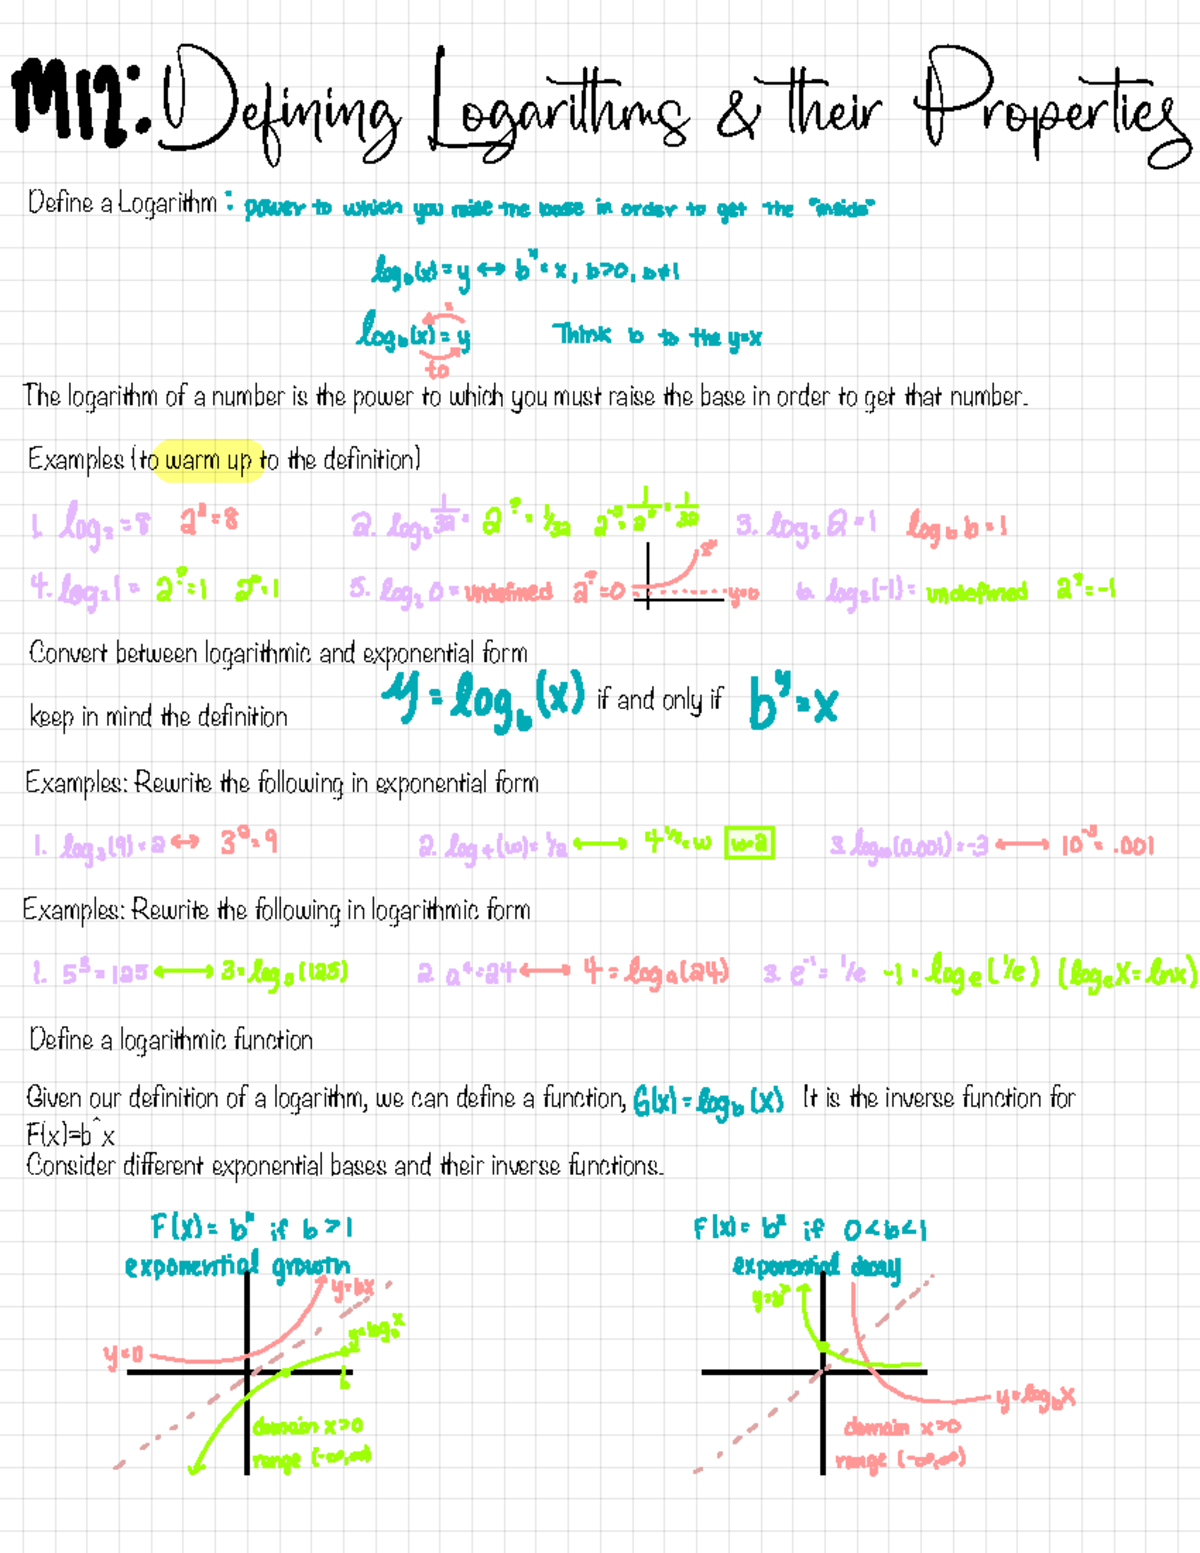 M12: Defining Logarithms & their Properties
Define a Logarithm : power to which you raise the base in order to get the "inside"
log_b(x) = y ↔ b^y = x, b>0, b≠1
log_b(x) = y Think b to the y=x
=
to
The logarithm of a number is the power to which you must raise the base in order to get that number.
Examples (to warm up to the definition)
1. log_2 = 8 2^3 = 8 2. log_2 1/32 = 2^? = 1/32 2^-5 = 1/2^5 = 1/32 3. log_2 2 = 1 log_b b = 1
4. log_2 1 = 2^? = 1 2^0 = 1 5. log_2 0 = undefined 2^? = 0 y=0 6. log_2(-1) = undefined 2^? = -1
Convert between logarithmic and exponential form
keep in mind the definition y = log_b(x) if and only if b^y = x
Examples: Rewrite the following in exponential form
1. log_3(9) = 2 ↔ 3^2 = 9 2. log_4(w) = 1/2 ⟷ 4^1/2 = w w=2 3. log_10(0.001) = -3 ⟷ 10^-3 = .001
Examples: Rewrite the following in logarithmic form
1. 5^3 = 125 ⟷ 3 = log_5(125) 2. a^4 = 24 ⟷ 4 = log_a(24) 3. e^-1 = 1/e -1 = log_e(1/e) (log_e X = lnx)
Define a logarithmic function
Given our definition of a logarithm, we can define a function, G(x) = log_b(x) It is the inverse function for
F(x)=b^x
Consider different exponential bases and their inverse functions.
F(x) = b^x if b>1
exponential growth
y=bx
y=log_b x
y=0
b
domain x>0
range (-∞,∞)
F(x) = b^x if 0<b<1
exponential decay
y=b^x
y=log_b x
domain x>0
range (-∞,∞)